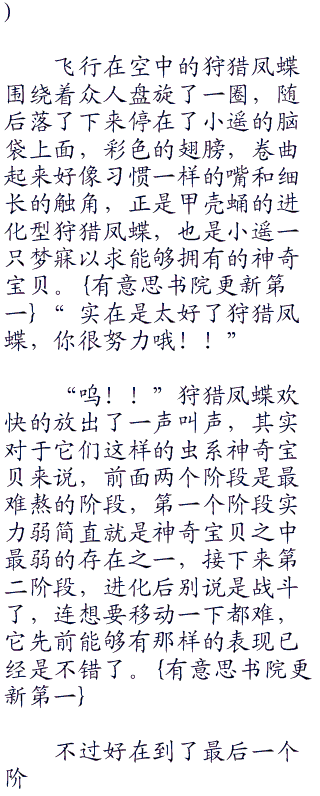 )
飞行在空中的狩猎凤蝶
围绕着众人盘旋了一圈，随
后落了下来停在了小遥的脑
袋上面，彩色的翅膀，卷曲
起来好像习惯一样的嘴和细
长的触角，正是甲壳蛹的进
化型狩猎凤蝶，也是小遥一
只梦寐以求能够拥有的神奇
宝贝。{有意思书院更新第
一}“ 实在是太好了狩猎凤
蝶，你很努力哦！！”
“呜！！”狩猎凤蝶欢
快的放出了一声叫声，其实
对于它们这样的虫系神奇宝
贝来说，前面两个阶段是最
难熬的阶段，第一个阶段实
力弱简直就是神奇宝贝之中
最弱的存在之一，接下来第
二阶段，进化后别说是战斗
了，连想要移动一下都难，
它先前能够有那样的表现已
经是不错了。{有意思书院更
新第一}
不过好在到了最后一个
阶